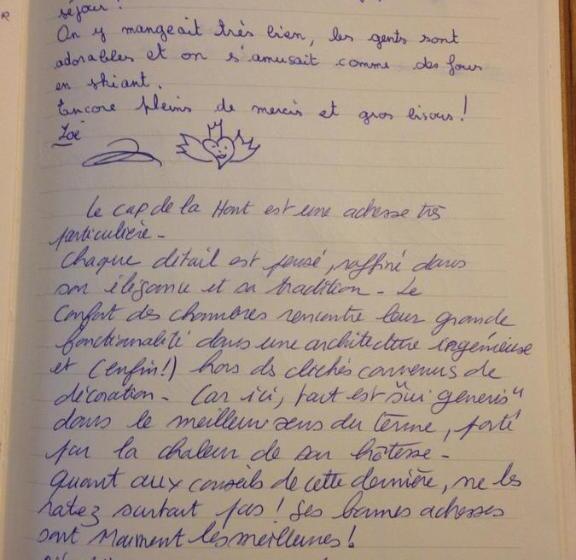 séjour !
On y mangeait très bien, les gents sont
adorables et on s'amusait comme des fous
en skiant.
Encore pleins de mercis et gros bisous !
Zoé
Le cap de la Hont est une adresse très
particulière -
Chaque détail est pensé, raffiné dans
son élégance et sa tradition - Le
confort des chambres rencontre leur grande
fonctionnalité dans une architecture ingénieuse
et (enfin!) hors des clichés convenus de
décoration - Car ici, tout est "sui generis"
dans le meilleur sens du terme, porté
par la chaleur de son hôtesse -
Quant aux conseils de cette dernière, ne les
ratez surtout pas ! Ses bonnes adresses
sont vraiment les meilleures !